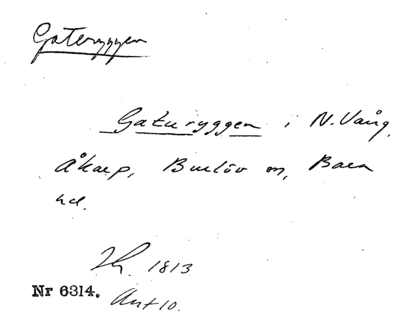 Gateryggen
Gaturyggen i N. Vång,
Åkarp, Burlöv sn, Bara
hd.
1813
Nr 6314. Ant 10.